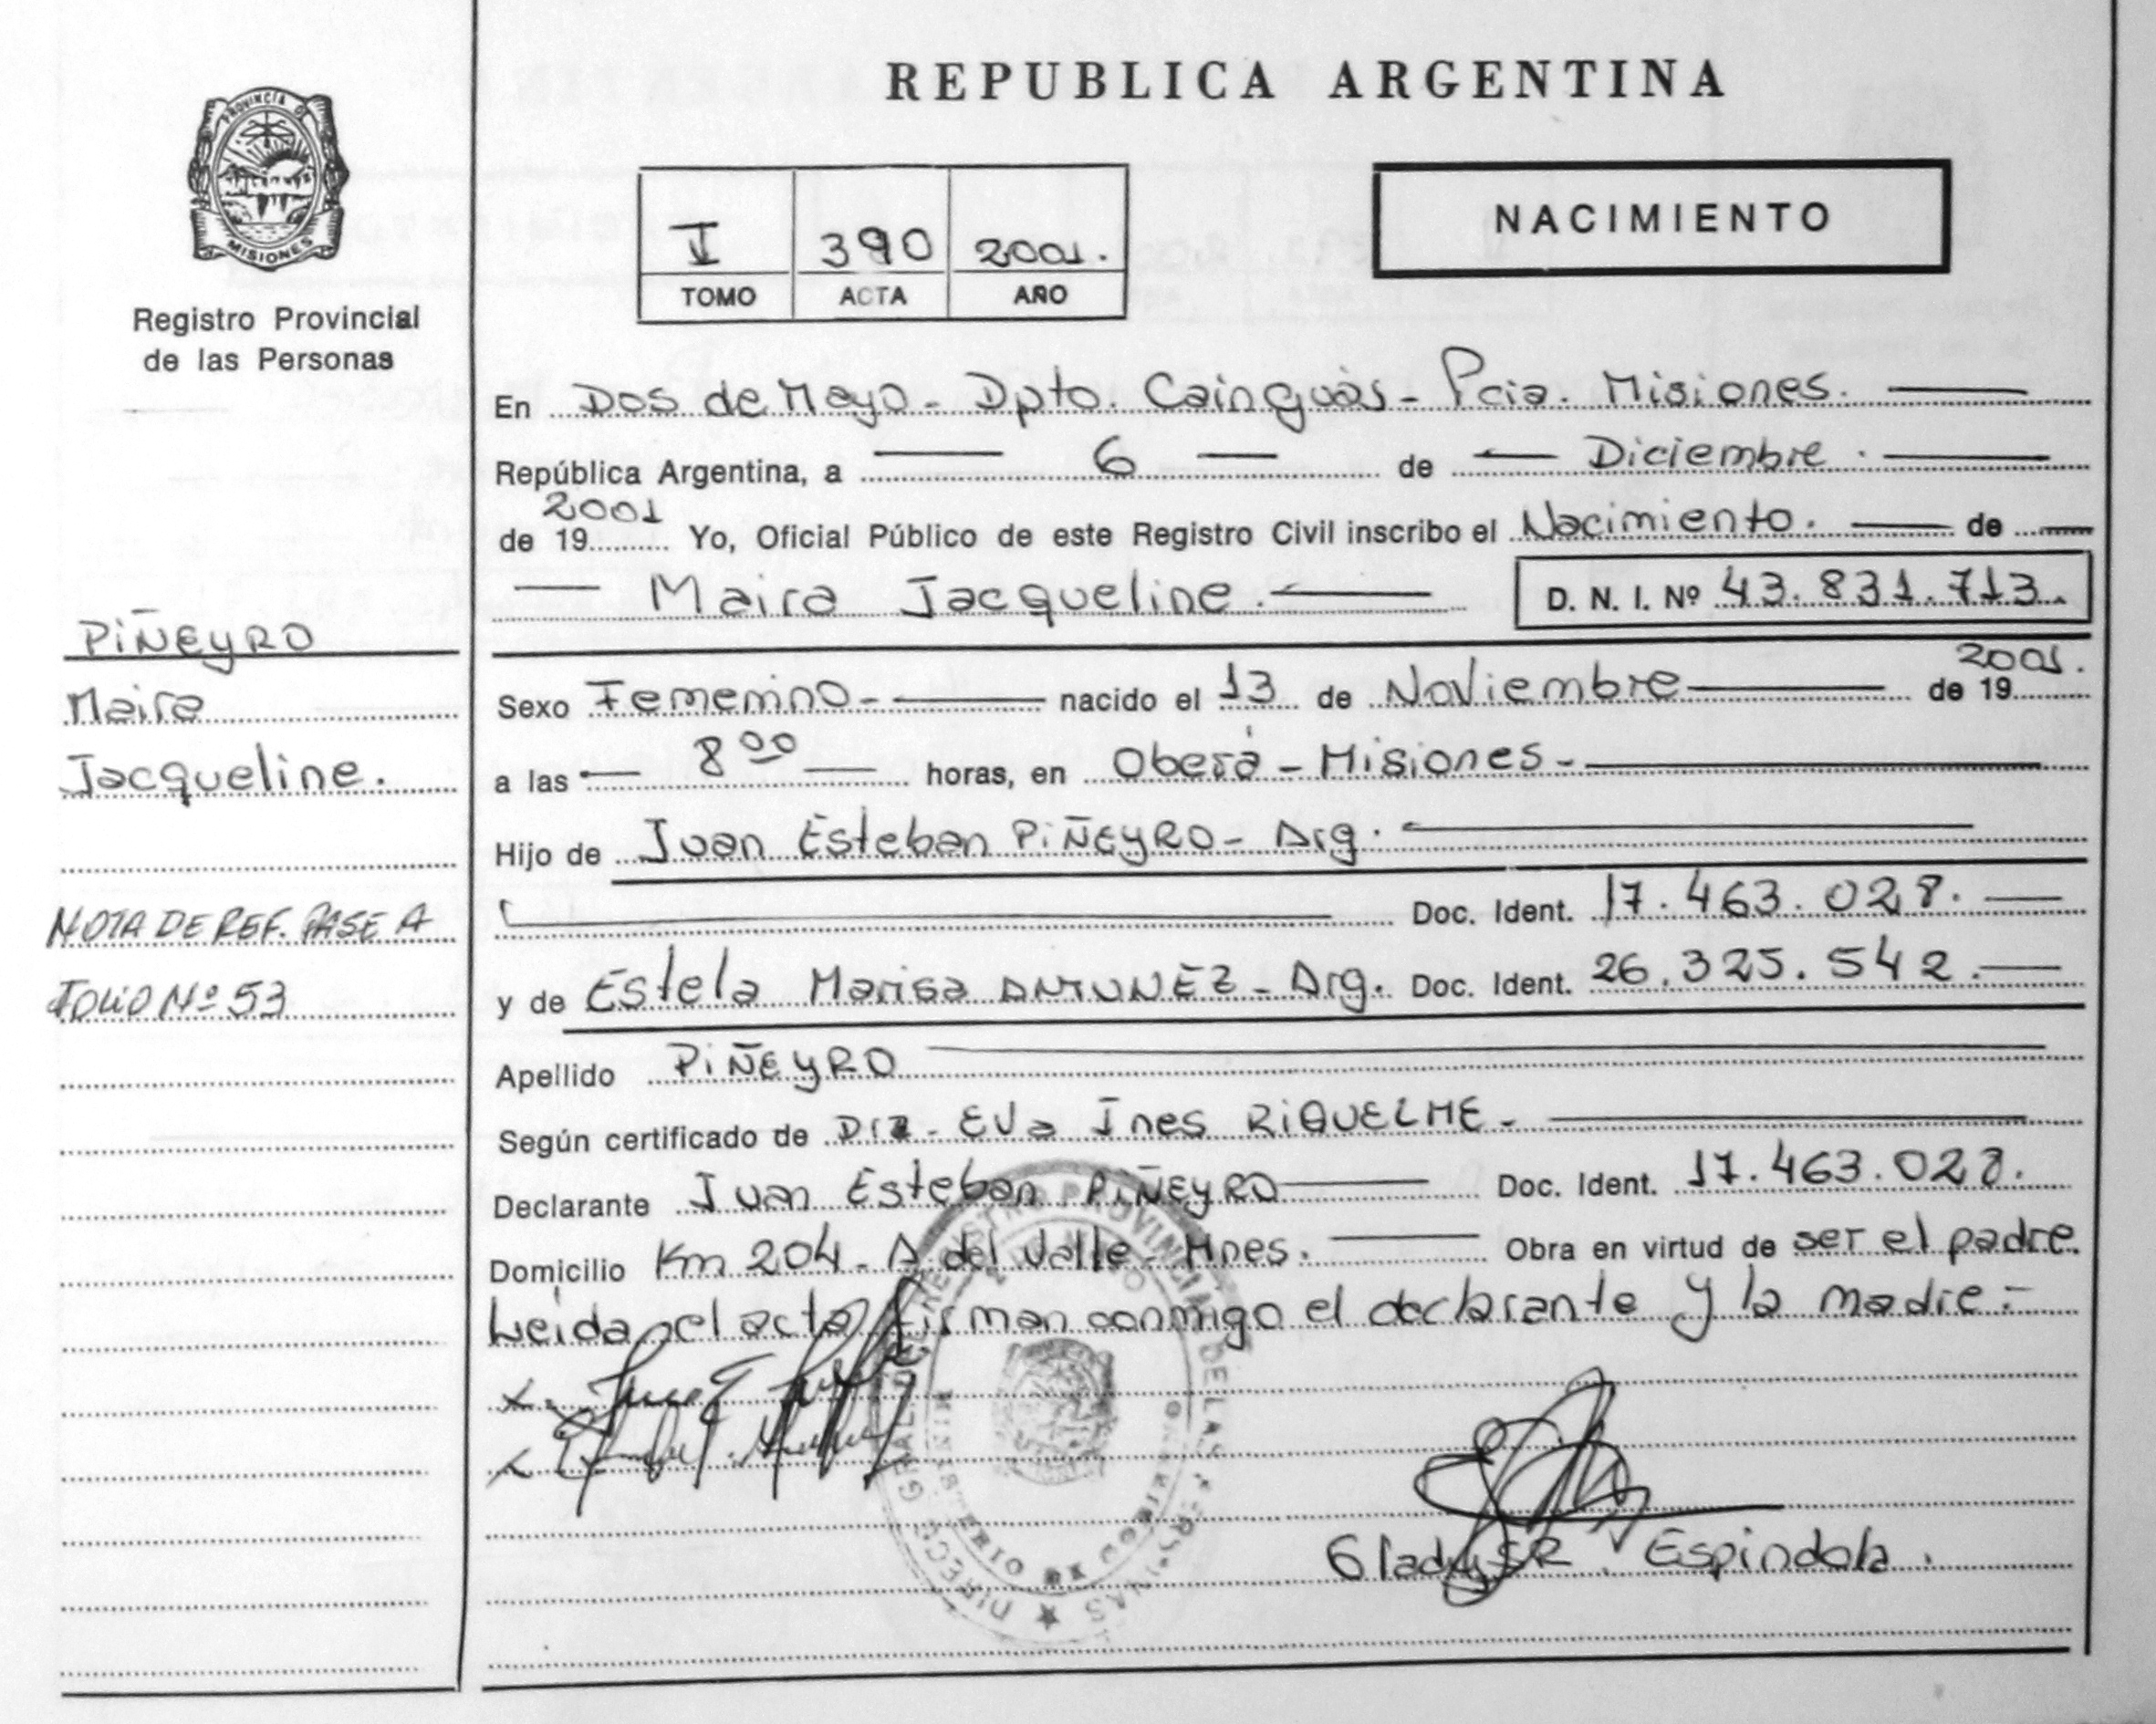 REPUBLICA ARGENTINA
PROVINCIA DE
MISIONES
Registro Provincial
de las Personas
I 390 2001.
TOMO ACTA AÑO
NACIMIENTO
En Dos de Mayo - Dpto. Cainguás - Pcia. Misiones.
República Argentina, a 6 de Diciembre.
de 19 2001 Yo, Oficial Público de este Registro Civil inscribo el Nacimiento. de
Maira Jacqueline. D. N. I. Nº 43.831.713.
PiÑEYRO
Maira
Jacqueline.
NOTA DE REF. PASE A
FOLIO Nº 53
Sexo Femenino- nacido el 13 de Noviembre de 19 2001.
a las 8 00 horas, en Oberá - Misiones-
Hijo de Juan Esteban PiÑEYRO - Arg.
Doc. Ident. 17.463.028.
y de Estela Marisa ANTUNEZ - Arg. Doc. Ident. 26.325.542.
Apellido PiÑEYRO
Según certificado de Dra. Eva Ines RIQUELME-
Declarante Juan Esteban PiÑEYRO Doc. Ident. 17.463.028.
Domicilio Km 204 - A del Valle - Mnes. Obra en virtud de ser el padre.
Leida el acta firman conmigo el declarante y la madre.-
x
x
Gladys R. Espindola.
DIRECC. GRAL. DEL REGISTRO PROVINCIAL DE LAS PERSONAS
MINISTERIO DE GOBIERNO